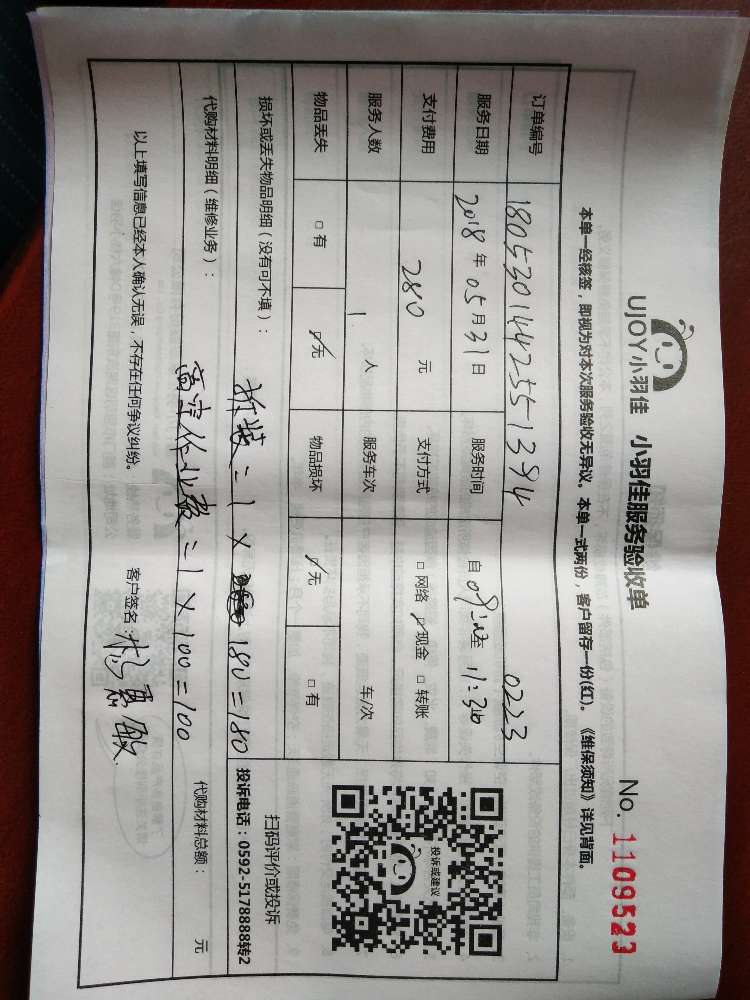 UJOY小羽佳 小羽佳服务验收单 No. 1109523
本单一经核签，即视为对本次服务验收无异议。本单一式两份，客户留存一份(红)。《维保须知》详见背面。
订单编号 180530144255-1394 0223
服务日期 2018年05月31日 服务时间 自 至 11:30
支付费用 280 元 支付方式 □网络 ☑现金 □转账
服务人数 1 人 服务车次 车/次
物品丢失 □有 ☑无 物品损坏 ☑无 □有
投诉或建议
扫码评价或投诉
投诉电话：0592-5178888转2
损坏或丢失物品明细（没有可不填）：
拆装=1×180=180
代购材料明细（维修业务）： 代购材料总额： 元
高空作业费=1×100=100
以上填写信息已经本人确认无误，不存在任何争议纠纷。 客户签名：